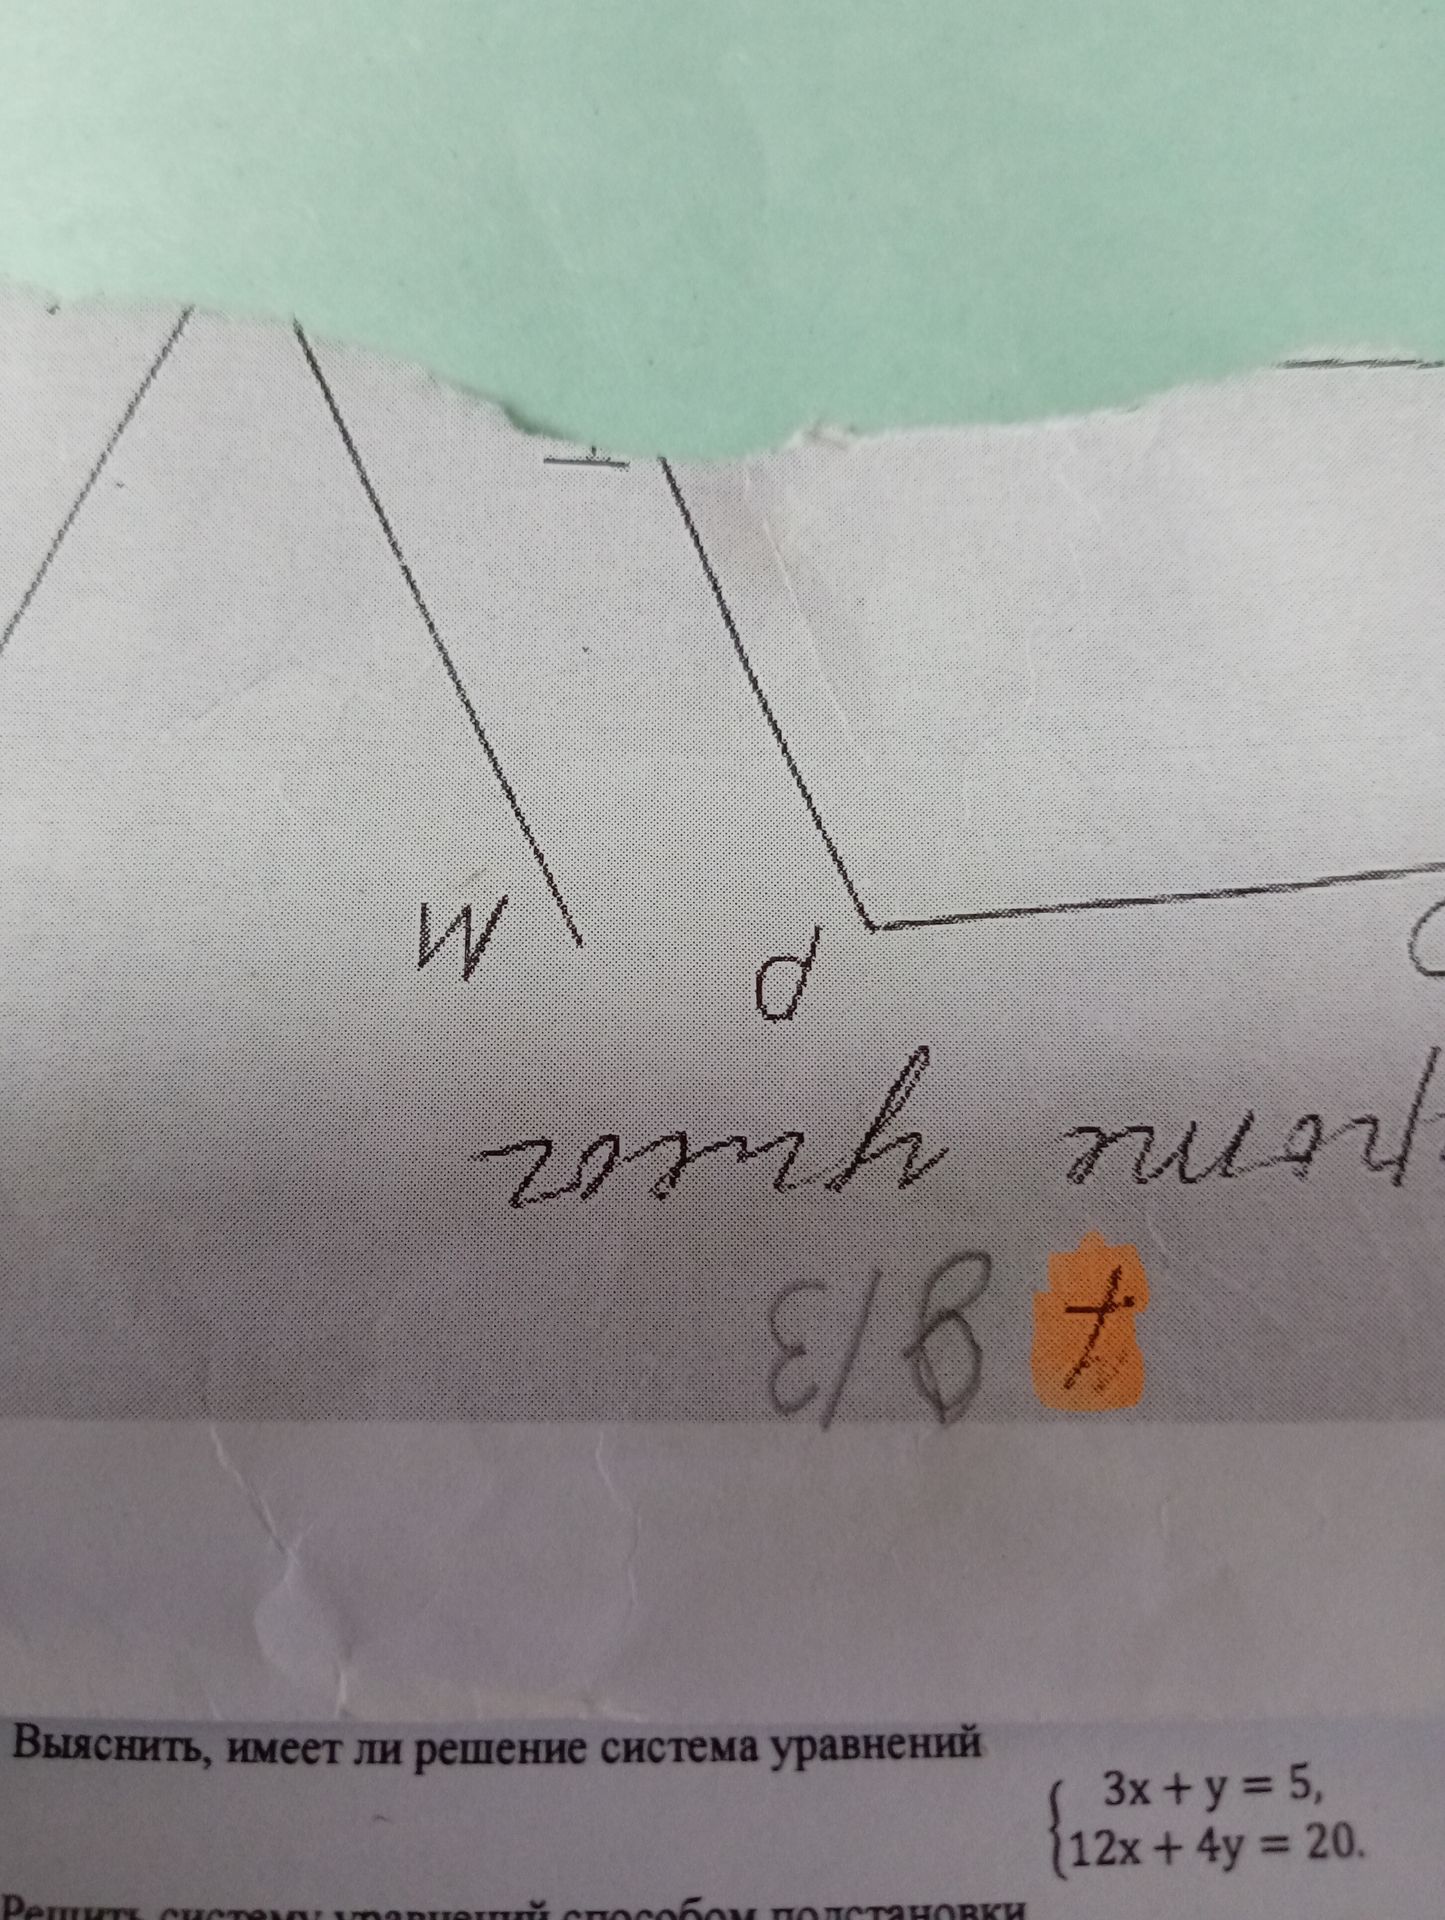 7. д/з
P
M
Выяснить, имеет ли решение система уравнений
3x + y = 5,
12x + 4y = 20.
Решить систему уравнений способом подстановки